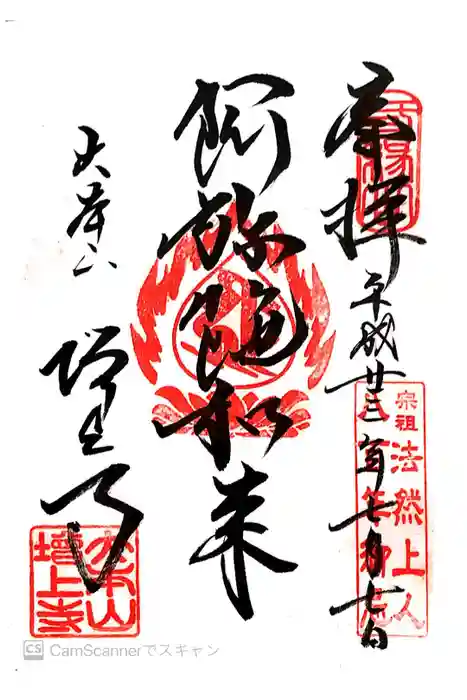 奉拝
平成廿三年七月七日
宗祖法然上人
阿弥陀如来
大本山
増上寺
大本山
増上寺
CS CamScannerでスキャン